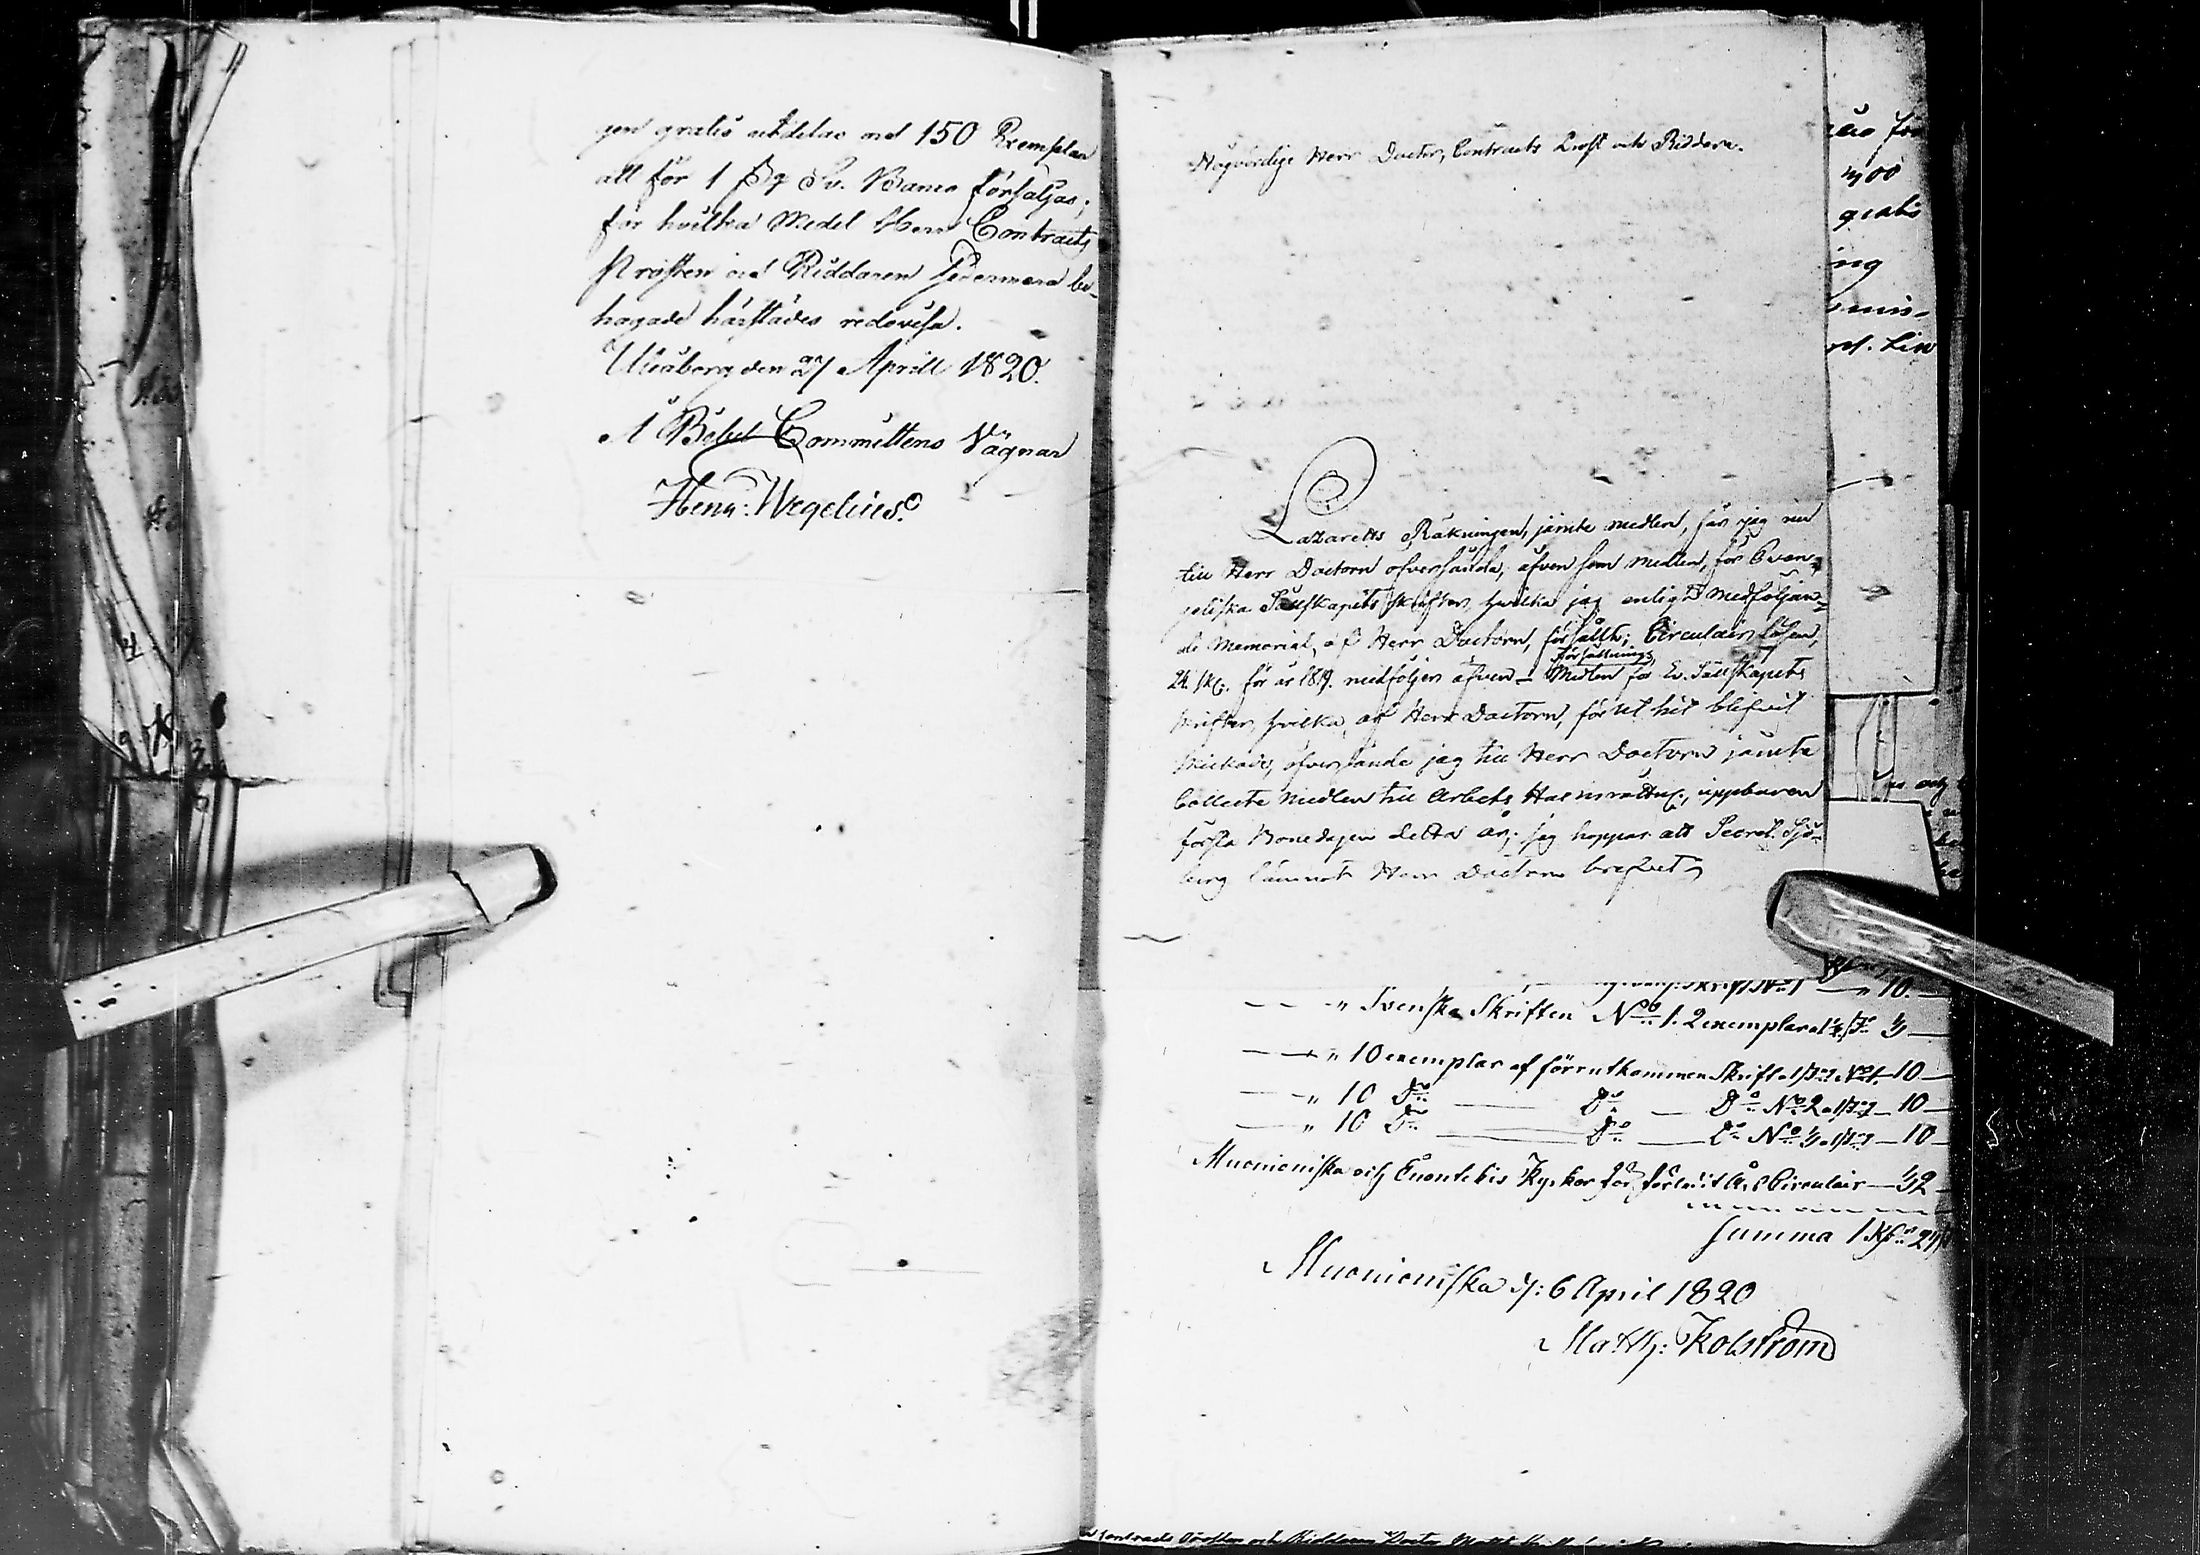 gen gratis utdelas och 150 Exemplar
att för 1 ßg Sv. Banco försäljas;
för hvilka Medel Herr Contracts
Prosten och Riddaren sedermera be-
hagade härstädes redovisa.
Uleåborg den 27 Aprill 1820.
Å Bibel Committens Vägnar
Henr: Wegelius.
Högvördige Herr Doctor, Contracts Prost och Riddare.
Lazaretts Räkningen, jämte medlen, får jag nu
till Herr Doctorn öfversända, äfven som medlen, för Evan-
geliska Sällskapets skrifter, hvilka jag enligt medföljan-
de Memorial, af Herr Doctorn, försålt; Circulairs lösen,
24 sk. för år 1819. medföljer äfven - försällnings Medlen för Ev. Sällskapets
skrifter, hvilka, af Herr Doctorn, förut hit blifvit
skickade, öfversände jag till Herr Doctorn jämte
Collecte medlen till Arbets Hus inrättn., uppburen
första Bönedagen detta år; jag hoppas att Secret. Sjö-
berg lämnat Herr Doctorn brefvet
10.
— — " Svenska Skriften No 1. 2 exemplar 3 —
— — " 10 exemplar af förrutkommen Skrift No 1. 10 —
— " 10 Do — Do — Do No 2 10 —
— " 10 Do — Do — Do No 3 10 —
Muonioniska och Enontekis Kyrkor för förledit År Circulair — 32
Summa 1
Muonioniska d: 6 April 1820
Matth: Kolström
gratis
ing